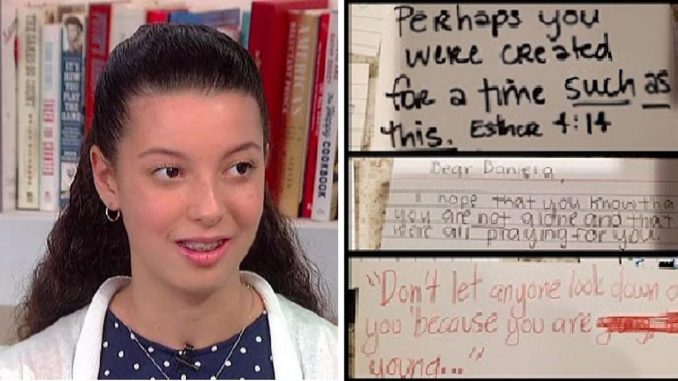 THE GAMES DO COUNT
IT'S HOW
YOU PLAY
THE GAME
COOKBOOK
Perhaps you
were created
for a time such as
this. Esther 4:14
Dear Daniela,
I hope that you know tha
you are not alone and that
we're all praying for you.
"Don't let anyone look down o
you because you are
young..."